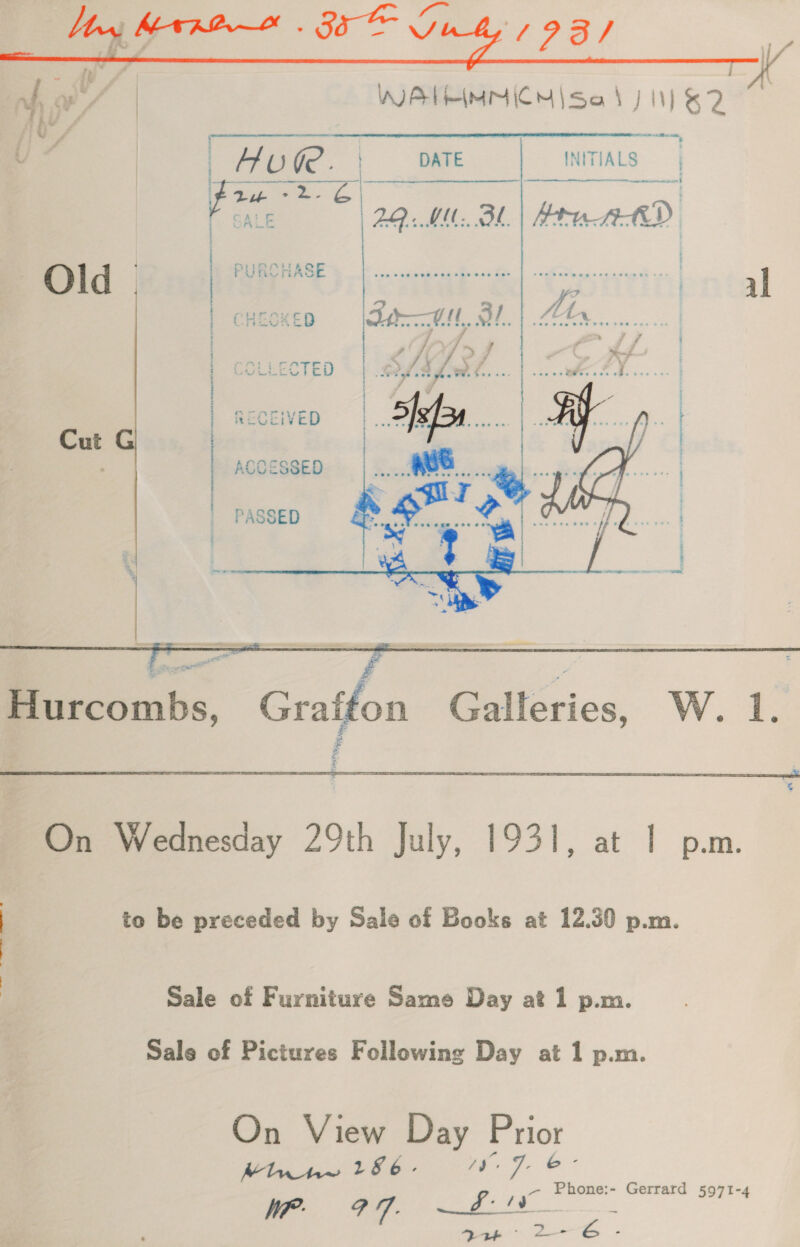 30th July 1931
WA/HMM/CM/Sal/11/82
HUR. DATE INITIALS
£24-2-6
SALE 29. VII. 31.
PURCHASE
CHECKED 30 VII. 31.
Old al
COLLECTED 5/8/31
RECEIVED 5/8/31
Cut G
ACCESSED AUG
PASSED
Hurcombs, Graffon Galleries, W. 1.
On Wednesday 29th July, 1931, at 1 p.m.
to be preceded by Sale of Books at 12.30 p.m.
Sale of Furniture Same Day at 1 p.m.
Sale of Pictures Following Day at 1 p.m.
On View Day Prior
286. 15. 7. 6 -
Phone:- Gerrard 5971-4
97. 8. 15
24 - 2 - 6 -